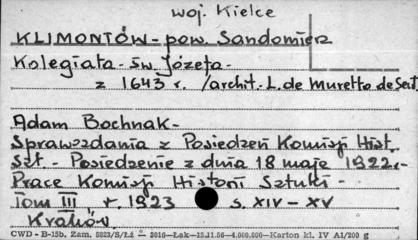 woj. Kielce
KLIMONTÓW - pow. Sandomierz
Kolegiata - św. Józefa -
z 1643 r. /archit. L. de Muretto de Sent
Adam Bochnak -
Sprawozdania z Posiedzeń Komisji Hist.
Szt. - Posiedzenie z dnia 18 maja 1922 r. -
Prace Komisji Historii Sztuki -
Tom III r. 1923 s. XIV - XV
Kraków.
CWD - B-15b. Zam. 5823/S/Łż 3016-Łak-15.11.56-4.000.000-Karton kl. IV A1/200 g